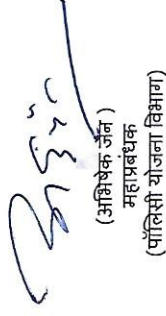 (अभिषेक जैन)
महाप्रबंधक
(पॉलिसी योजना विभाग)